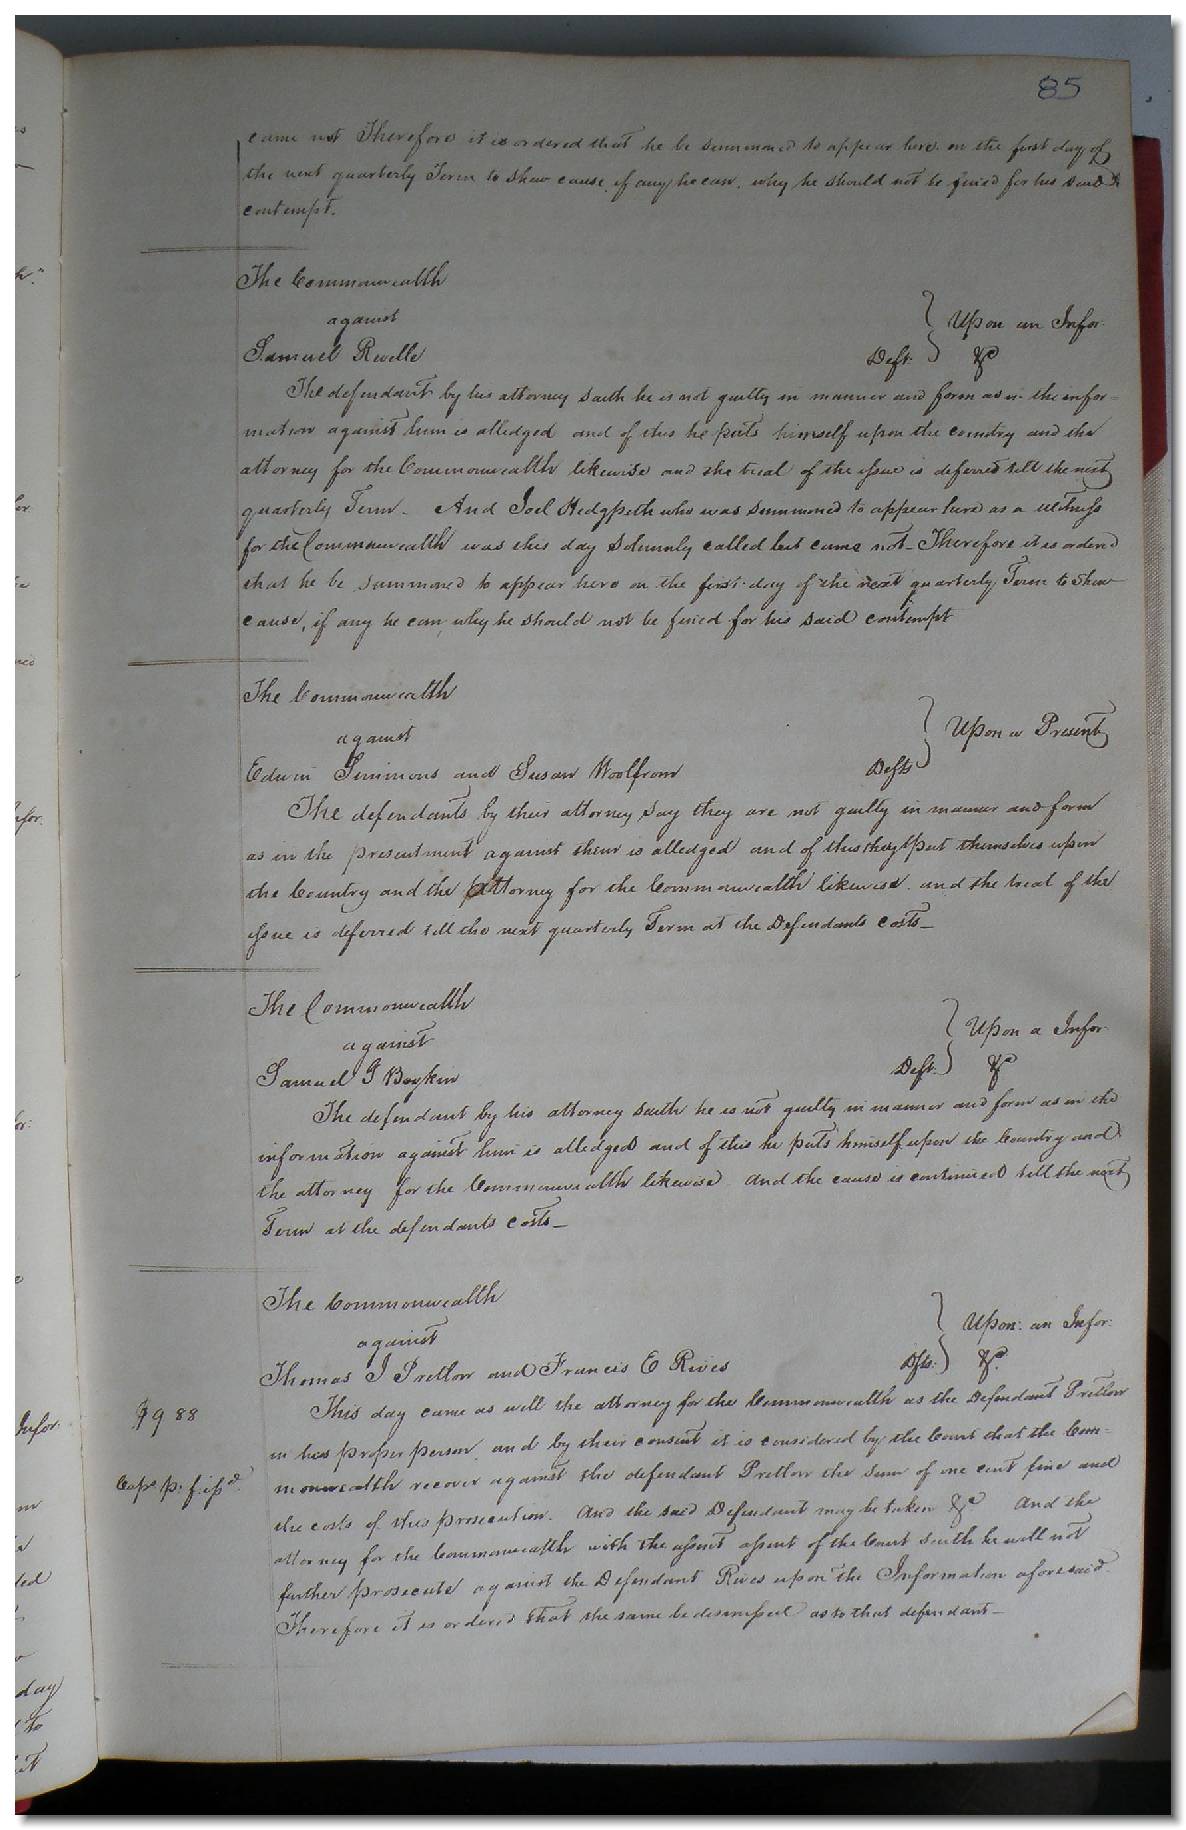 85
came not Therefore it is ordered that he be summoned to appear here on the first day of
the next quarterly Term to shew cause, if any he can, why he should not be fined for his said
contempt.
The Commonwealth
against
Samuel Revelle Deft. } Upon an Infor:
&c
The defendant by his attorney saith he is not guilty in manner and form as in the infor=
mation against him is alledged and of this he puts himself upon the country and the
attorney for the Commonwealth likewise and the trial of the issue is deferred till the next
quarterly Term - And Joel Hedgpeth who was summoned to appear here as a witness
for the Commonwealth was this day solemnly called but came not - Therefore it is ordered
that he be summoned to appear here on the first day of the next quarterly Term to shew
cause, if any he can, why he should not be fined for his said contempt
The Commonwealth
against
Edwin Simmons and Susan Woolfrom Defts } Upon a Present
The defendants by their attorney say they are not guilty in manner and form
as in the presentment against them is alledged and of this they put themselves upon
the Country and the Attorney for the Commonwealth likewise. and the trial of the
issue is deferred till the next quarterly Term at the Defendants costs -
The Commonwealth
against
Samuel G Boykin Deft. } Upon a Infor:
&c
The defendant by his attorney saith he is not guilty in manner and form as in the
information against him is alledged and of this he puts himself upon the Country and
the attorney for the Commonwealth likewise. And the cause is continued till the next
Term at the defendants costs -
The Commonwealth
against
Thomas J Pretlow and Francis E Rives Dfts: } Upon: an Infor:
&c.
$9 88
This day came as well the attorney for the Commonwealth as the Defendant Pretlow
in his proper person, and by their consent it is considered by the Court that the Com=
monwealth recover against the defendant Pretlow the sum of one cent fine and
the costs of this prosecution. And the said Defendant may be taken &c And the
attorney for the Commonwealth with the assent assent of the Court saith he will not
further prosecute against the Defendant Rives upon the Information aforesaid.
Therefore it is ordered that the same be dismissed as to that defendant -